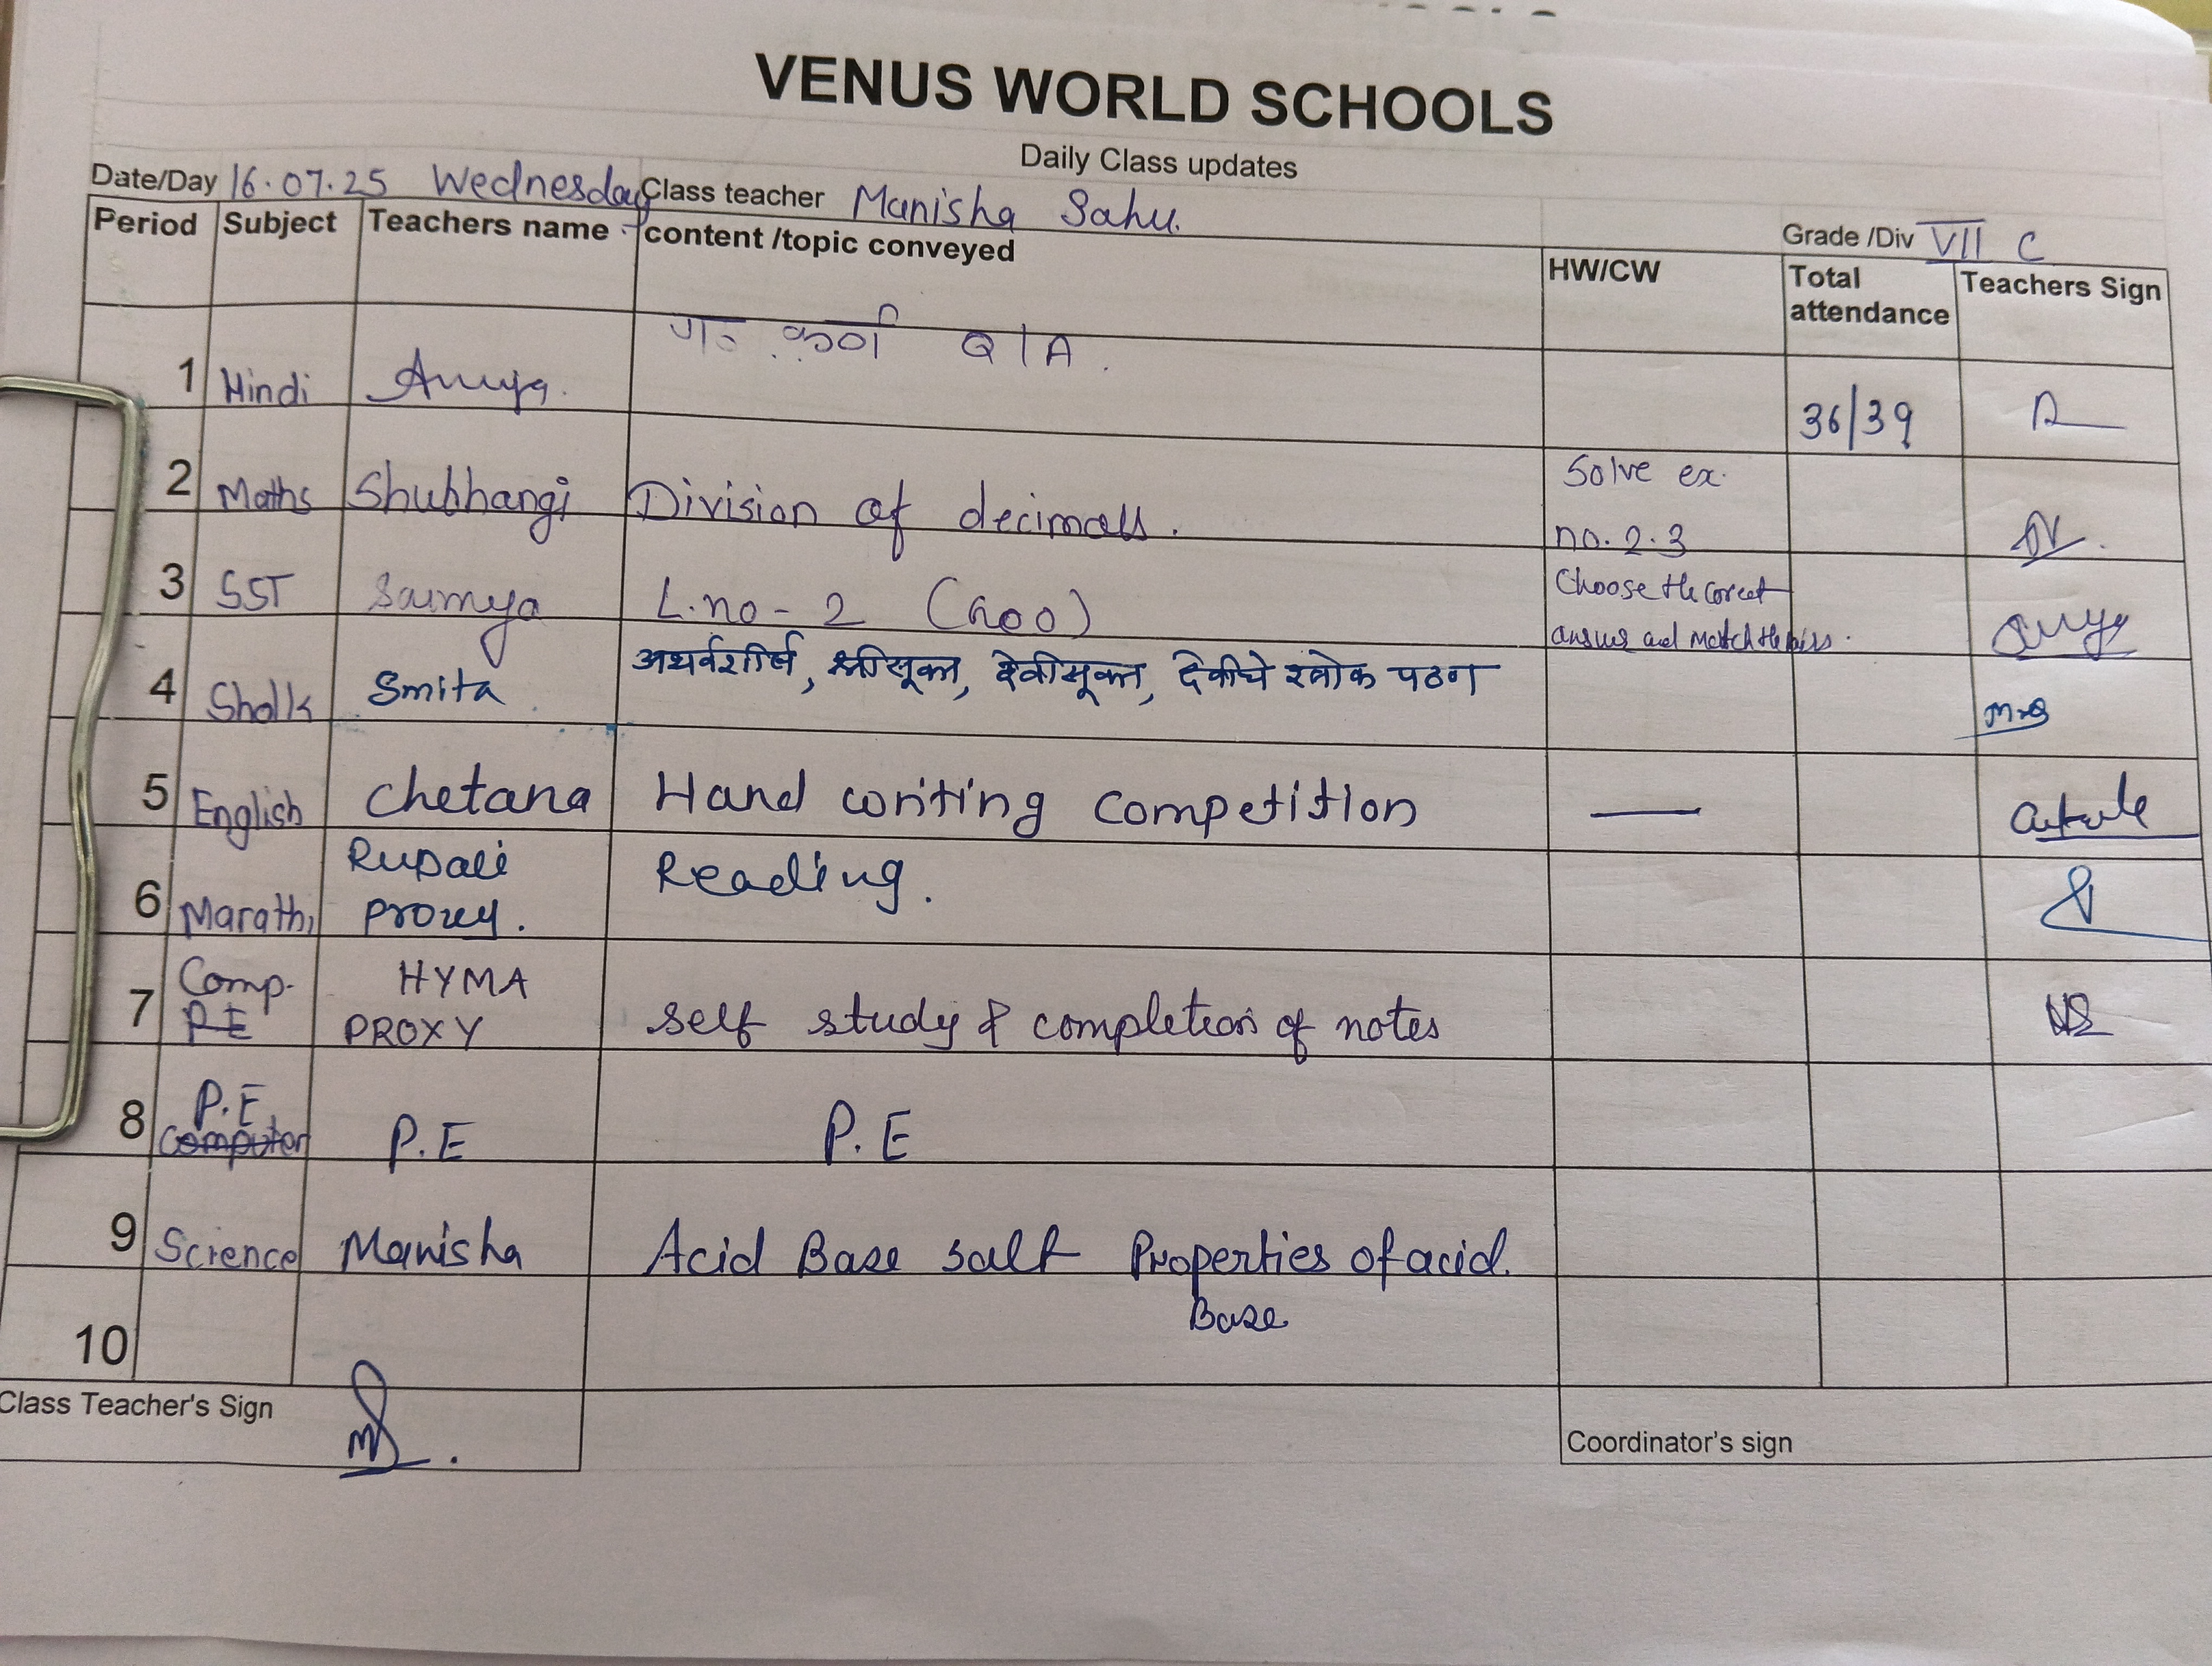 VENUS WORLD SCHOOLS
Daily Class updates
Date/Day 16.07.25 Wednesday Class teacher Manisha Sahu. Grade /Div VII C
Period Subject Teachers name content /topic conveyed HW/CW Total attendance Teachers Sign
1 Hindi Anuja. Q/A. 36/39
2 Maths Shubhangi Division of decimals. Solve ex. no. 2.3
3 SST Saumya L.no - 2 Choose the correct
answer and match the
4 Sholk Smita अथर्वशीर्ष, श्रीसूक्त, देवीसूक्त, देवीचे श्लोक पठण
5 English Chetana Hand writing Competition —
6 Marathi Rupali proxy. Reading.
7 Comp. P.E HYMA PROXY self study & completion of notes
8 P.E Computer P.E P.E
9 Science Manisha Acid Base salt Properties of acid.
Base
10
Class Teacher's Sign
Coordinator's sign